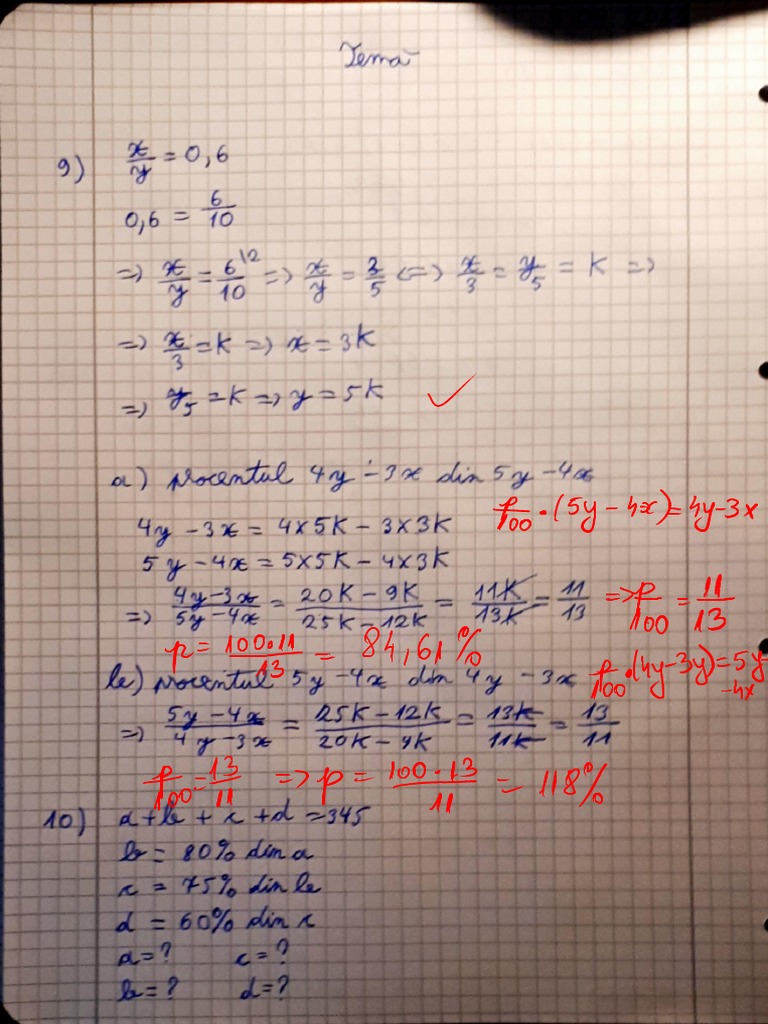 Temă
9) x/y = 0,6
0,6 = 6/10
=> x/y = 6/10 ^(2 => x/y = 3/5 <=> x/3 = y/5 = K =>
=> x/3 = K => x = 3K
=> y/5 = K => y = 5K ✓
a) procentul 4y - 3x din 5y - 4x
p/100 • (5y - 4x) = 4y - 3x
4y - 3x = 4x5K - 3x3K
5y - 4x = 5x5K - 4x3K
=> 4y-3x/5y-4x = 20K - 9K/25K - 12K = 11K/13K = 11/13 => p/100 = 11/13
p = 100•11/13 = 84,61%
b) procentul 5y - 4x din 4y - 3x p/100 • (4y-3y) = 5y
-4x
=> 5y-4x/4y-3x = 25K - 12K/20K - 9K = 13K/11K = 13/11
p/100 = 13/11 => p = 100•13/11 = 118%
10) a + b + c + d = 345
b = 80% din a
c = 75% din b
d = 60% din c
a = ? c = ?
b = ? d = ?